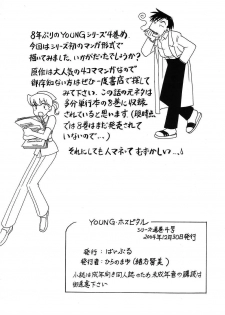 8年ぶりのYOUNGシリーズ4巻め
今回はシリーズ初のマンガ形式で
描いてみました。いかがだったでしょうか？
原作は大人気の4コママンガなので
御存知ない方はぜひ一度書店で探して
みて下さい。この話の元ネタは
多分単行本の8巻に収録
されていると思います（現時点
では8巻はまだ発売されて
いないので…）
それにしても人マネってむずかしい…。
YOUNG・ホスピタル
シリーズ通巻4号
2004年12月30日発行
発行：ばいぶる
発行者：ひらのまゆ（緒方賢美）
小誌は成年向き同人誌のため未成年者の購読は
御遠慮下さい